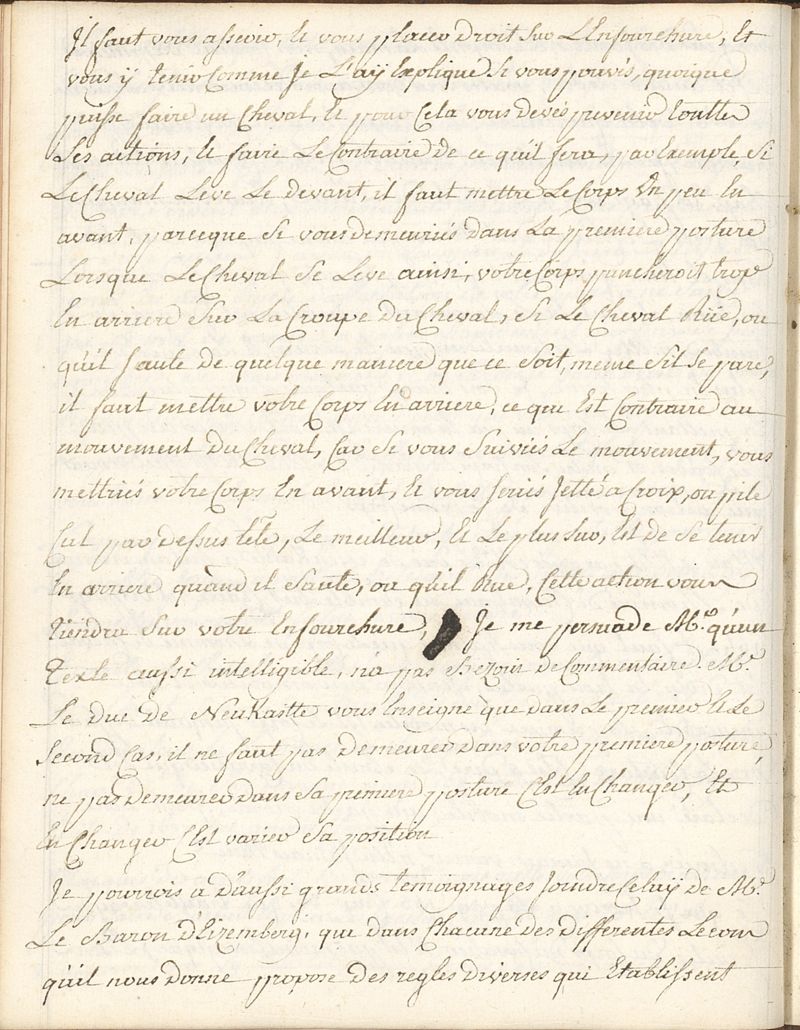 Il faut vous asseoir, et vous placer droit sur L'Enfourchure, Et
vous y tenir Comme Je L'aÿ Expliqué si vous pouvés, quoique
puisse faire un Cheval, Et pour Cela vous devés prevenir touttes
Ses actions, Et faire Le Contraire de ce qu'il fera, par Exemple, Si
Le Cheval Leve Le devant, il faut mettre Le Corps un peu En
avant, parceque Si vous demeuriés dans La premiere posture
Lorsque Le Cheval Se Leve ainsi, votre Corps pancheroit trop
En arriere Sur La Croupe du Cheval, Si Le Cheval Rüe, ou
qu'il saute de quelque maniere que ce Soit, meme S'il Se pare,
il faut mettre votre Corps En arriere, ce que Est Contraire au
mouvement du Cheval, Car Se vous Suiviés Le mouvement, vous
mettriés votre Corps En avant, Et vous Seriés Jetté a Croix, ou pile
Cul par dessus tête, Le meilleur, Et Le plus Sur, Est de Se tenir
En arriere quand il Saute, ou qu'il Rue, Cette action vous
tiendra Sur votre Enfourchure, Je me persuade Mrs. qu'un
texte aussi intelligible, n'a pas Bezoin de Commentaire. Mr.
Le duc de Neukastte vous Enseigne que dans Le premier Et Le
Second Cas, il ne faut pas demeurer dans votre premiere posture,
ne pas demeurer dans Sa premiere posture C'est En Changer, Et
En Changer C'est varier Sa position
Je pourrois a d'aussi grands temoignages Joindre Celuÿ de Mr.
Le Baron d'Eizemberg, que dans Chacune des differentes Lecons
qu'il nous donne propose des regles diverses qui Etablissent